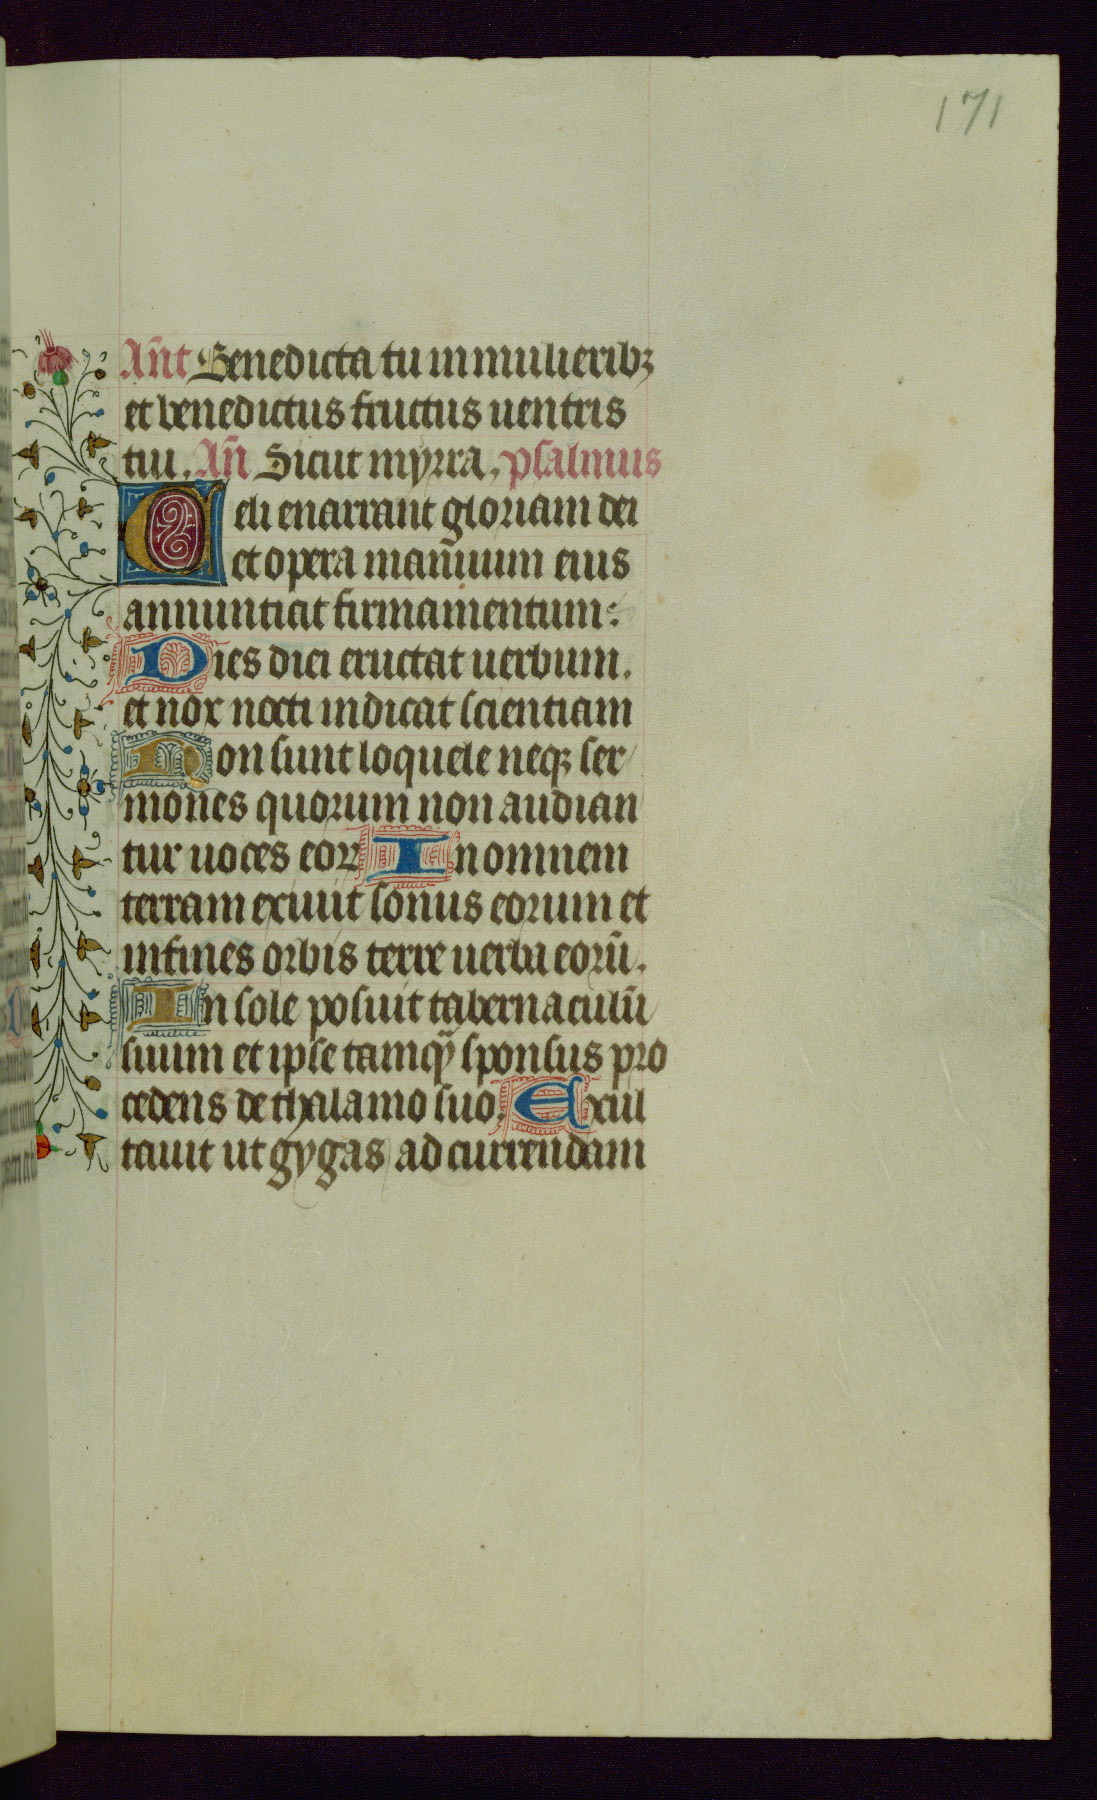 171
Añt Benedicta tu in mulieribꝫ
et benedictus fructus uentris
tui. Añ Sicut myrra. psalmus
Celi enarrant gloriam dei
et opera manuum eius
annuntiat firmamentum:
Dies diei eructat uerbum.
et nox nocti indicat scientiam
Non sunt loquele neqꝫ ser
mones quorum non audian
tur uoces eoꝝ In omnem
terram exiuit sonus eorum et
in fines orbis terre uerba eorū.
In sole posuit tabernaculū
suum et ipse tamqȝ sponsus pro
cedens de thalamo suo. Exul
tauit ut gygas ad currendam